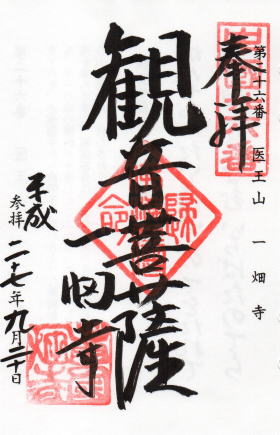 奉拝
第二十六番 医王山 一畑寺
観音菩薩
一畑寺
平成二十七年九月二十日
参拝